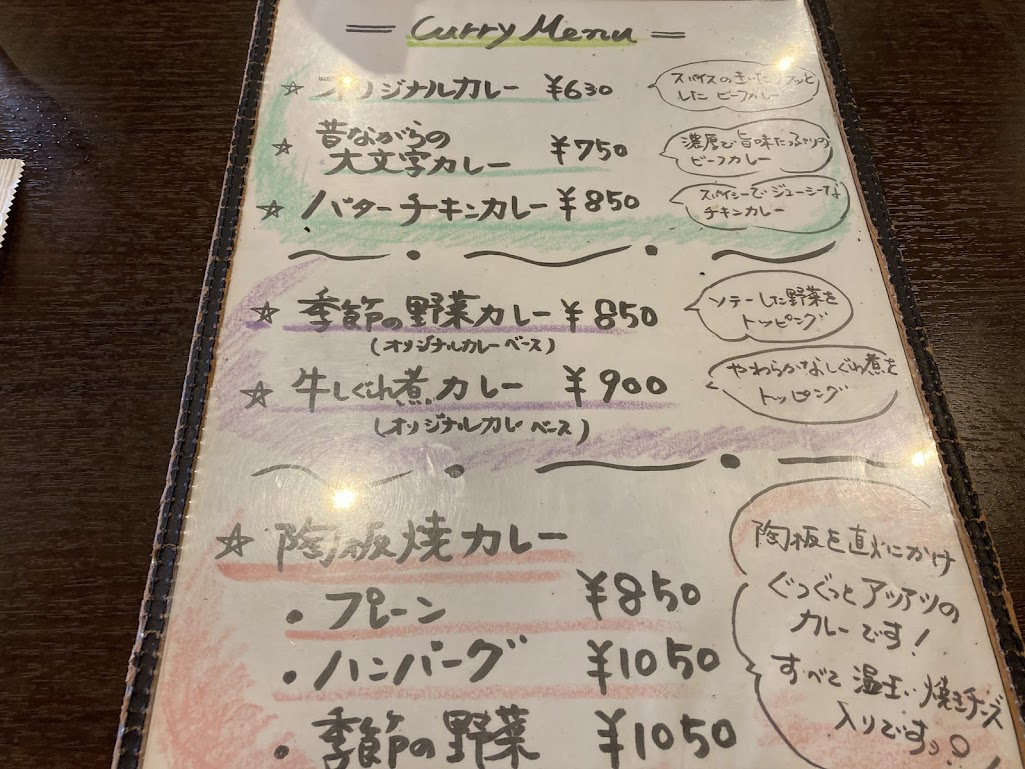 Curry Menu
☆ オリジナルカレー ¥630
スパイスのきいたリッと
した ビーフカレー
☆ 昔ながらの
大文字カレー ¥750
濃厚で旨味たっぷりの
ビーフカレー
☆ バターチキンカレー ¥850
スパイシーでジューシーな
チキンカレー
☆ 季節の野菜カレー ¥850
(オリジナルカレーベース)
ソテーした野菜を
トッピング
☆ 牛しぐれ煮カレー ¥900
(オリジナルカレーベース)
やわらかなしぐれ煮を
トッピング
☆ 陶板焼カレー
・プレーン ¥850
・ハンバーグ ¥1050
・季節の野菜 ¥1050
陶板を直火にかけ
ぐつぐつとアツアツの
カレーです!
すべて 温玉、焼きチーズ
入りです。